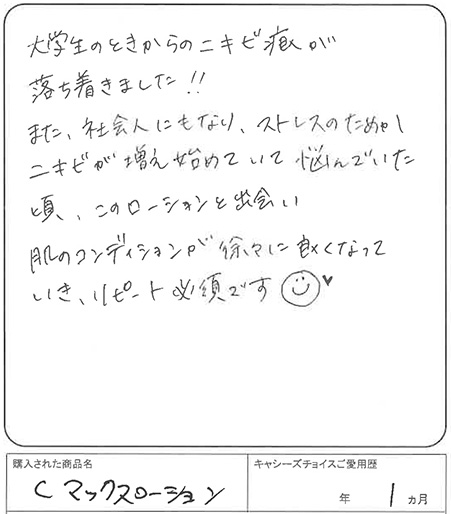 大学生のときからのニキビ痕が
落ち着きました!!
また、社会人にもなり、ストレスのためか
ニキビが増え始めていて悩んでいた
頃、このローションと出会い
肌のコンディションが徐々に良くなって
いき、リピート必須です
購入された商品名
C マックスローション
キャシーズチョイスご愛用歴
年 1 ヵ月